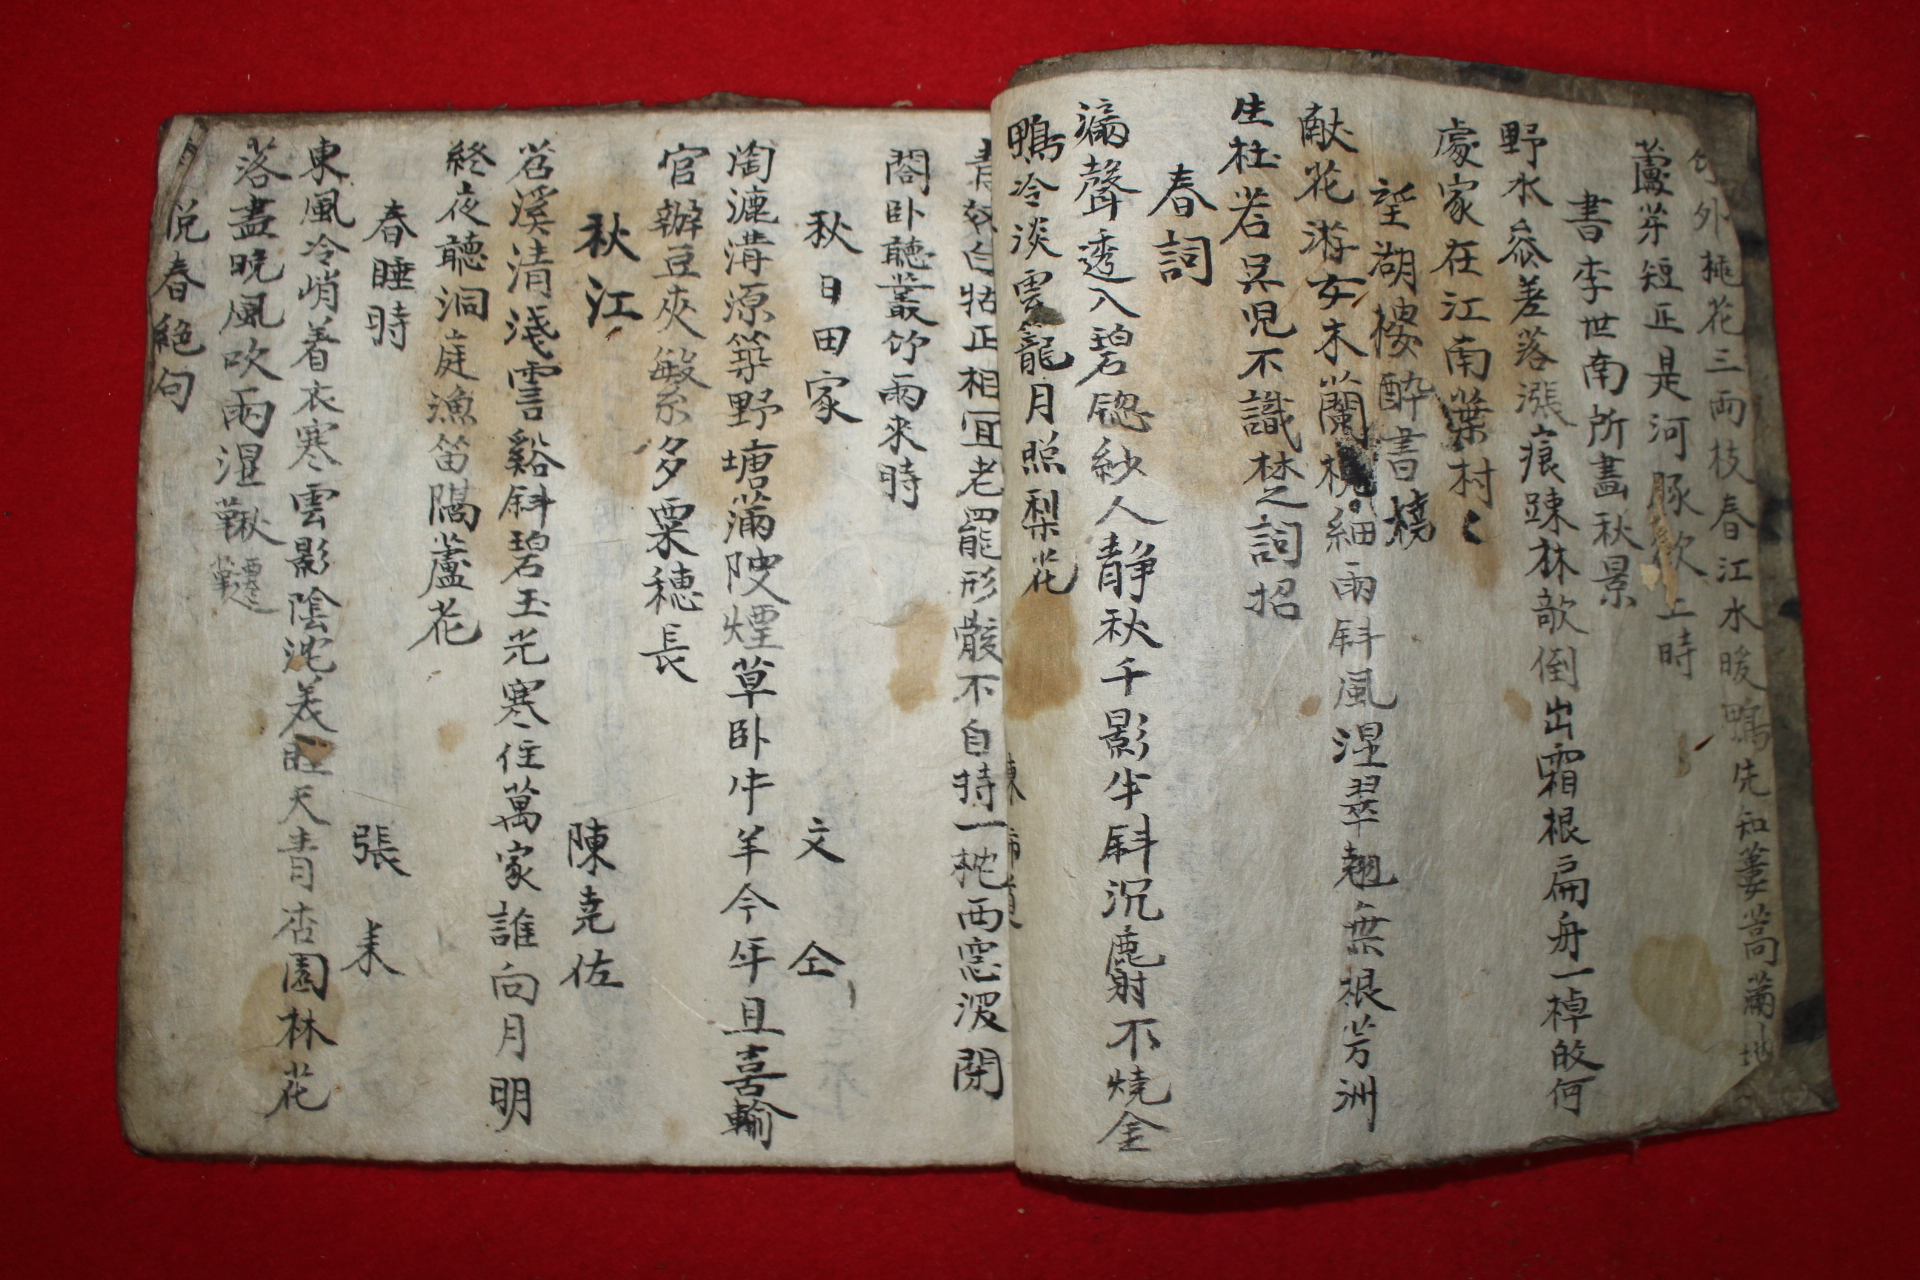 竹外桃花三兩枝春江水暖鴨先知蔞蒿滿地
蘆芽短正是河豚欲上時
書李世南所畵秋景
野水叅差落漲痕踈林欹倒出霜根扁舟一棹皈何
處家在江南葉村
望湖樓醉書
献花游女木蘭橈細雨斜風濕翠翹無根芳洲
生杜若吴児不識楚詞招
春詞
漏聲透入碧窓紗人静秋千影半斜沉麝不燒金
鴨冷淡雲籠月照梨花
青奴白牯正相宜老罷形骸不自持一枕西窓深閉
閤卧聽叢竹雨來時
秋日田家 文仝
淘漉溝源築野塘滿陂煙草卧牛羊今年且喜輸
官辦豆夾繁多粟穗長
秋江 陳尭佐
苕溪清淺霅谿斜碧玉光寒住萬家誰向月明
終夜聽洞庭漁笛隔蘆花
春睡時 張耒
東風冷峭着衣寒雲影陰沈羙旺天青杏園林花
落盡晚風吹雨濕鞦韆
悅春絶句